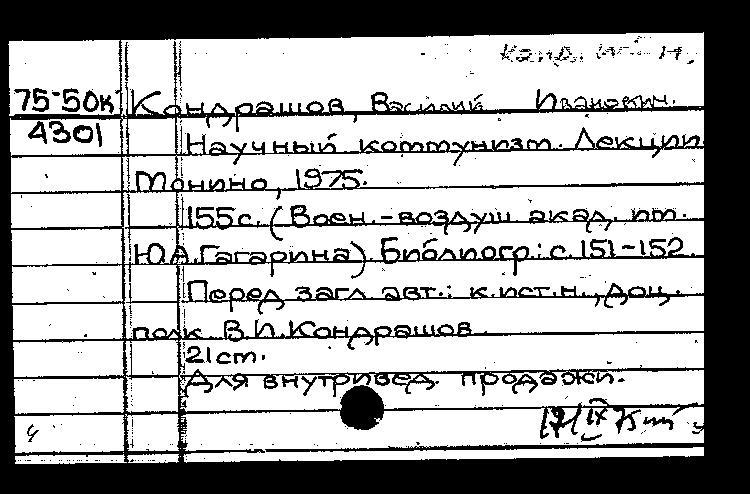 Канд. ист. н.
75-50к Кондрашов, Василий Иванович.
4301 Научный коммунизм. Лекции.
Монино, 1975.
155 с. (Воен.-воздуш акад. им.
Ю.А.Гагарина) Библиогр.: с. 151-152.
Перед загл. авт.: к.ист.н., доц.
полк. В.И.Кондрашов.
21 cm.
Для внутривед. продажи.
4